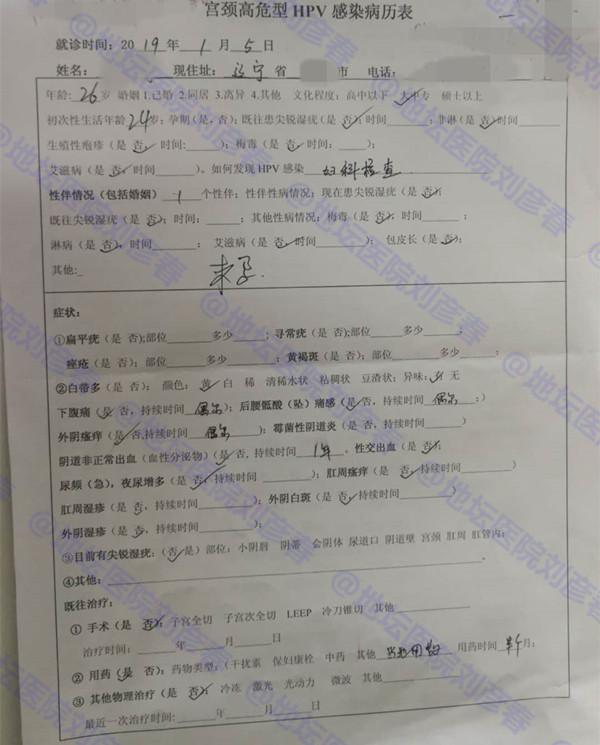 宫颈高危型 HPV 感染病历表
就诊时间：2019年1月5日
姓名： 现住址：辽宁省 市 电话：
年龄：26岁 婚姻 1.已婚 2.同居 3.离异 4.其他 文化程度：高中以下 大中专 硕士以上
初次性生活年龄24岁；孕期（是，否）；既往患尖锐湿疣（是 否）；时间 ；非淋（是 否）时间
生殖性疱疹（是 否；时间: ）；梅毒（是 否，时间： ）；
艾滋病（是 否；时间 ）。如何发现 HPV 感染 妇科检查
性伴情况（包括婚姻） 1 个性伴；性伴性病情况：现在患尖锐湿疣（是 否）；
既往尖锐湿疣（是 否）；时间： ；其他性病情况：梅毒（是 否）；时间 ；
淋病（是 否，时间 ； 艾滋病（是 否，时间 ）； 包皮长（是 否）；
其他: 未孕.
症状：
①扁平疣（是 否);部位 多少 ；寻常疣（是 否);部位 多少 ；
痤疮（是 否)；部位 多少 ；黄褐斑（是 否)；部位 多少 ；
②白带多（是 否）； 颜色： 黄 白 稀 清稀水状 粘稠状 豆渣状；异味：有 无
下腹痛（是 否，持续时间 偶尔 ；后腰骶酸（坠）痛感（是 否，持续时间 偶尔 ；）
外阴瘙痒（是 否,持续时间 偶尔 ）；霉菌性阴道炎（是 否，持续时间 ）
阴道非正常出血（血性分泌物）（是 否, 持续时间 1年 。性交出血（是 否）；
尿频（急），夜尿增多（是 否，持续时间 ）；肛周瘙痒（是 否，持续时间 ）
肛周湿疹（是 否，持续时间 ）；外阴白斑（是 否，持续时间 ）
外阴湿疹（是 否，持续时间 ）；
③目前有尖锐湿疣：（否 是）部位：小阴唇 阴蒂 会阴体 尿道口 阴道壁 宫颈 肛周 肛管内；
④其他：
既往治疗：
① 手术（是 否）；子宫全切 子宫次全切 LEEP 冷刀锥切 其他
治疗时间： 年 月 日
② 用药（是 否）；药物类型；（干扰素 保妇康栓 中药 其他 用药时间 月；
③ 其他物理治疗（是 否）；冷冻 激光 光动力 微波 其他
最近一次治疗时间: 年 月 日
@地坛医院刘彦春